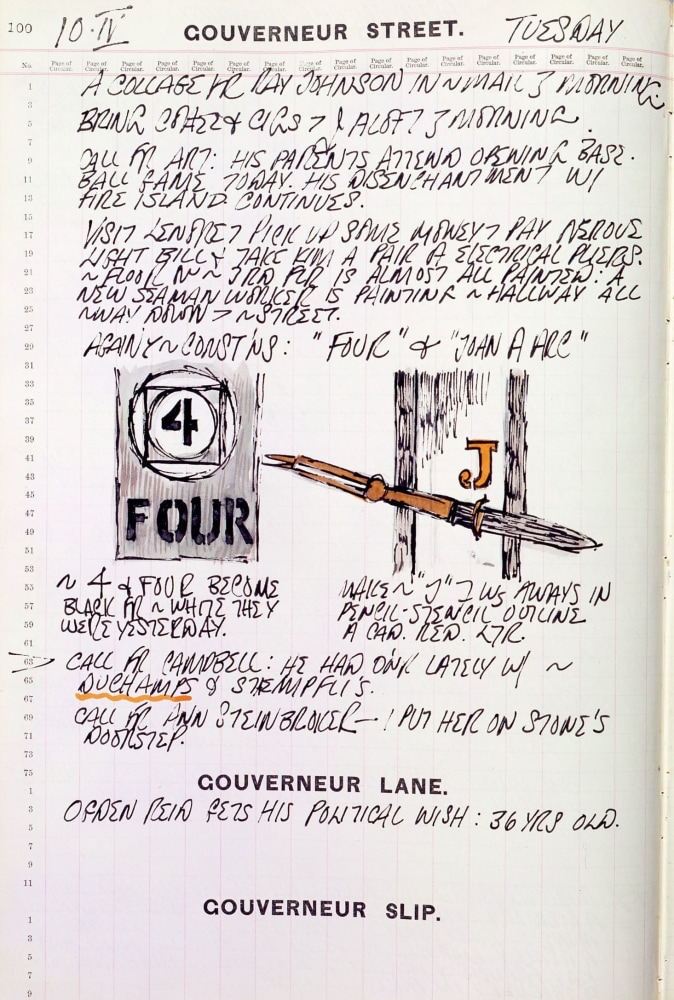 100 10·IV GOUVERNEUR STREET. TUESDAY
No. Page of Circular. Page of Circular. Page of Circular. Page of Circular. Page of Circular. Page of Circular. Page of Circular. Page of Circular. Page of Circular. Page of Circular. Page of Circular. Page of Circular. Page of Circular. Page of Circular. Page of Circular. Page of Circular. Page of Circular.
1 A COLLAGE FR RAY JOHNSON IN ~ MAIL MORNING
3
5 BRING & CIGS ALOFT MORNING.
7
9 CALL FR ART: HIS PARENTS ATTEND OPENING BASE-
11 BALL GAME TODAY. HIS DISENCHANTMENT W/
13 FIRE ISLAND CONTINUES.
15
17 VISIT PICK UP SOME MONEY PAY
19 LIGHT BILL & TAKE HIM A PAIR A ELECTRICAL PLIERS.
21 ~ FLOOR ~ 3RD FLR IS ALMOST ALL PAINTED: A
23 NEW SEAMAN WORKER IS PAINTING ~ HALLWAY ALL
25 ~ WAY DOWN ~ STREET.
27
29 AGAIN ~ CONST'NS: "FOUR" & "JOAN A ARC"
31
33
35
37 4
39
41 J
43
45
47 FOUR
49
51
53
55 ~ 4 & FOUR BECOME MAKE ~ "J" WS ALWAYS IN
57 BLACK FR ~ WHITE THEY PENCIL-STENCIL OUTLINE
59 WERE YESTERDAY. A CAD. RED. LTR.
61
63 CALL FR CAMPBELL: HE HAD LATELY W/ ~
65 DUCHAMPS & STEMPFLI'S.
67
69 CALL FR ANN STEINBROCKER — I PUT HER ON STONE'S
71 DOORSTEP.
73
75 GOUVERNEUR LANE.
1
3 OGDEN REID GETS HIS POLITICAL WISH: 36 YRS OLD.
5
7
9
11 GOUVERNEUR SLIP.
1
3
5
7
9